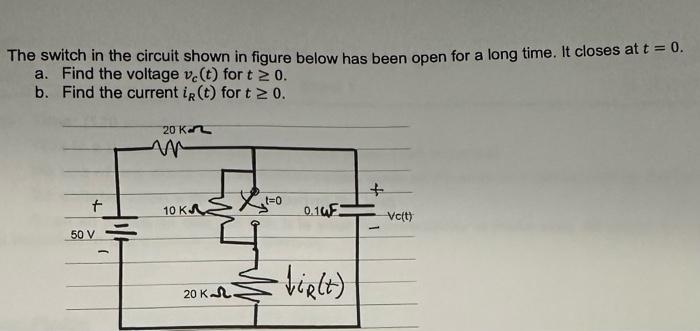 The switch in the circuit shown in figure below has been open for a long time. It closes at t = 0.
a. Find the voltage v_c(t) for t ≥ 0.
b. Find the current i_R(t) for t ≥ 0.
20 KΩ
+
50 V
-
10 KΩ
t=0
0.1uF
+
Vc(t)
-
20 KΩ
↓i_R(t)